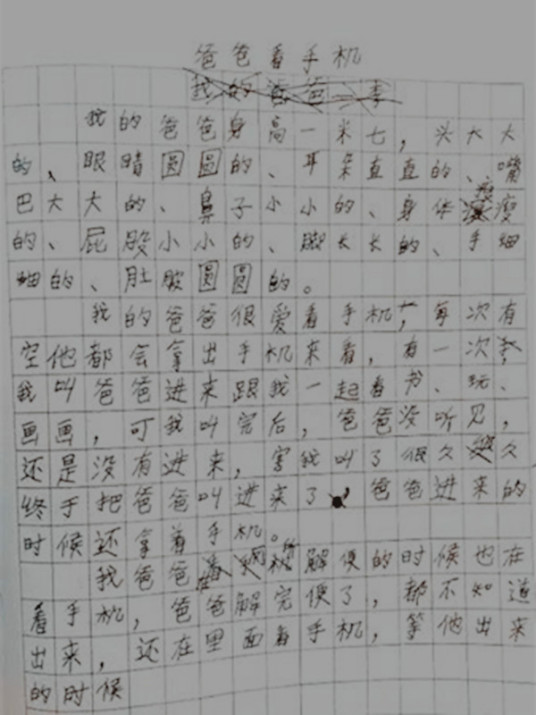 爸爸看手机
我的爸爸
我的爸爸身高一米七，头大大
的、眼睛圆圆的、耳朵直直的、嘴
巴大大的、鼻子小小的、身体瘦
的、屁股小小的、脚长长的、手细
细的、肚皮圆圆的。
我的爸爸很爱看手机，每次有
空他都会拿出手机来看，有一次，
我叫爸爸进来跟我一起看书、玩、
画画，可我叫完后，爸爸没听见，
还是没有进来，害我叫了很久久
终于把爸爸叫进来了，爸爸进来的
时候还拿着手机。
我爸爸在解便的时候也在
看手机，爸爸解完便了，都不知道
出来，还在里面看手机，等他出来
的时候